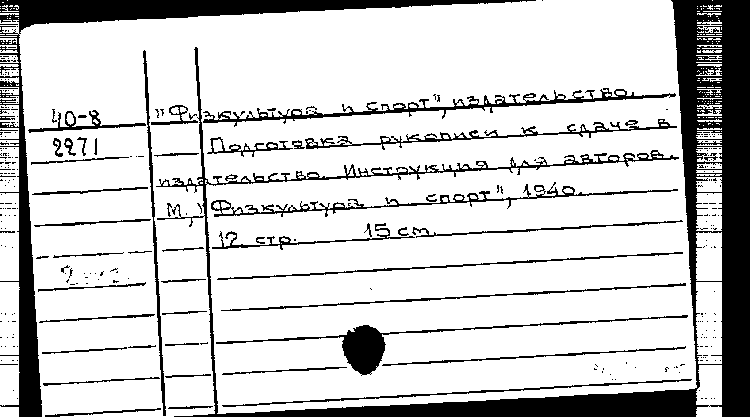 40-8 "Физкультура и спорт", издательство.
2271 Подготовка рукописи к сдаче в
издательство. Инструкция для авторов.
М., "Физкультура и спорт", 1940.
12 стр. 15 см.